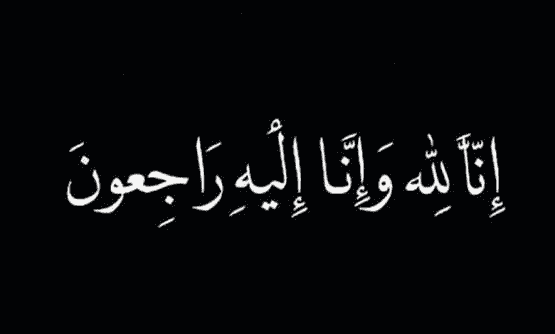 إِنَّا لِلّهِ وَإِنَّا إِلْيهِ رَاجِعونَ